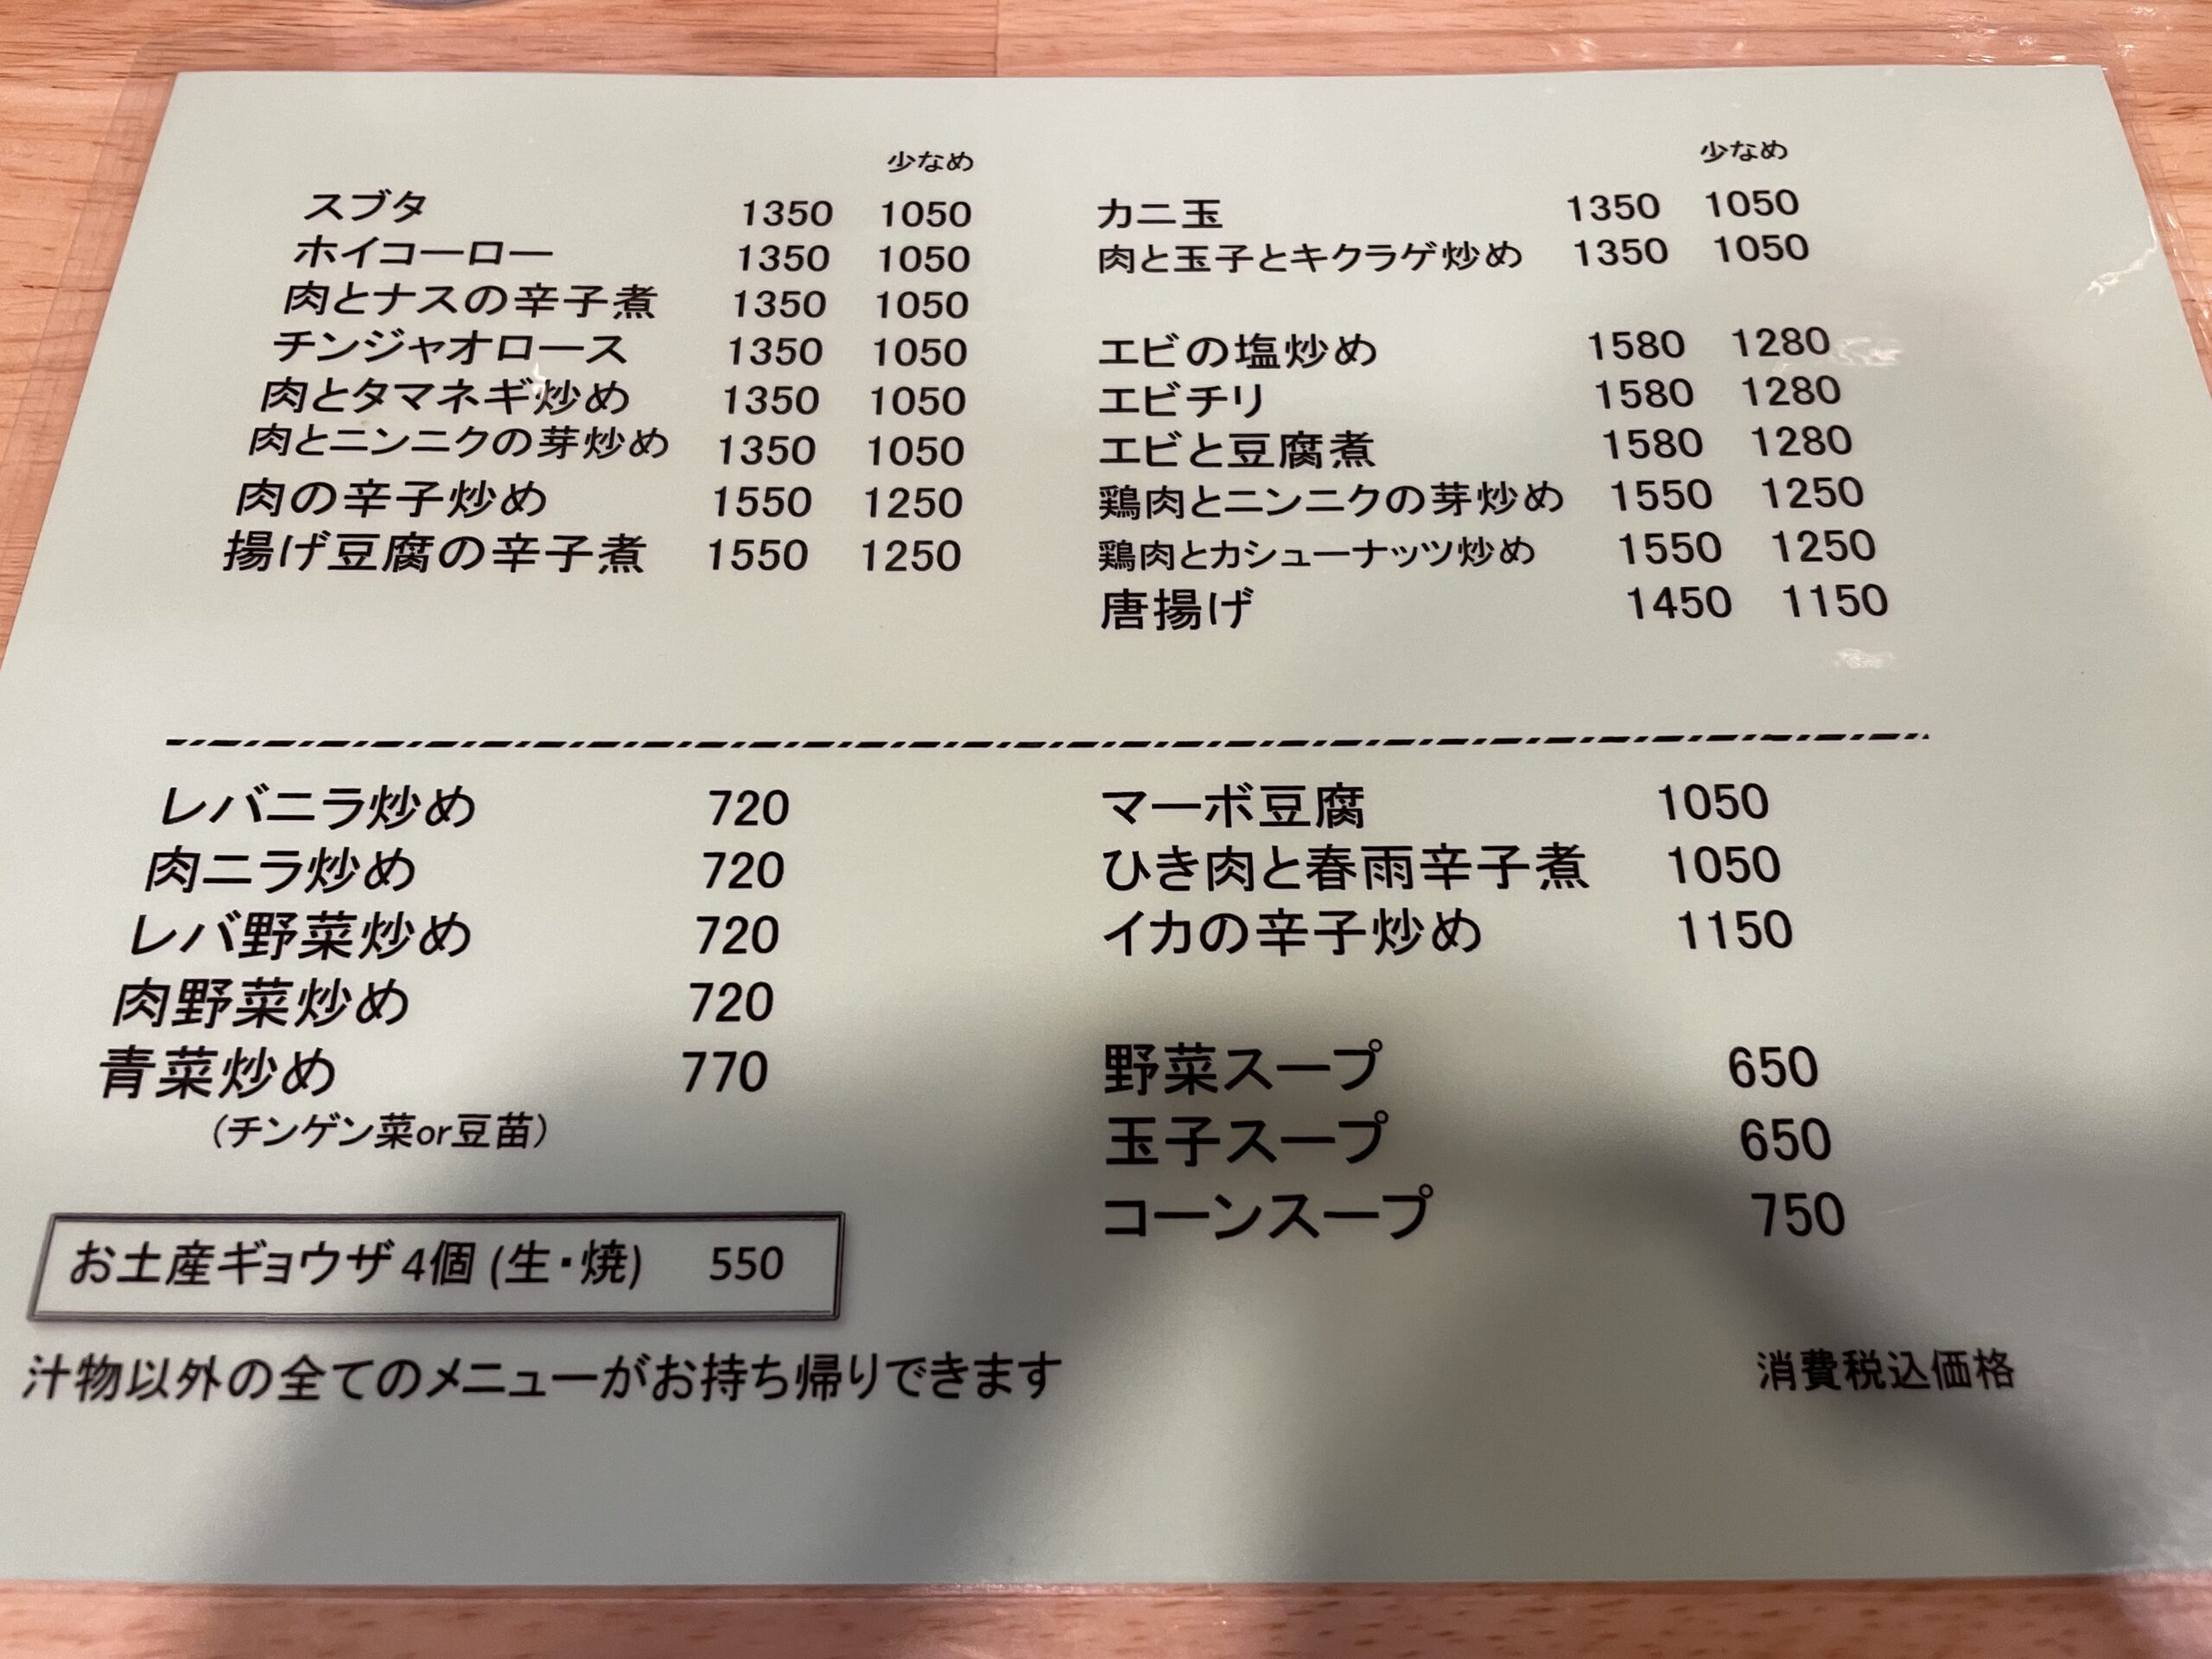 少なめ
スブタ 1350 1050
ホイコーロー 1350 1050
肉とナスの辛子煮 1350 1050
チンジャオロース 1350 1050
肉とタマネギ炒め 1350 1050
肉とニンニクの芽炒め 1350 1050
肉の辛子炒め 1550 1250
揚げ豆腐の辛子煮 1550 1250
少なめ
カニ玉 1350 1050
肉と玉子とキクラゲ炒め 1350 1050
エビの塩炒め 1580 1280
エビチリ 1580 1280
エビと豆腐煮 1580 1280
鶏肉とニンニクの芽炒め 1550 1250
鶏肉とカシューナッツ炒め 1550 1250
唐揚げ 1450 1150
レバニラ炒め 720
肉ニラ炒め 720
レバ野菜炒め 720
肉野菜炒め 720
青菜炒め 770
(チンゲン菜or豆苗)
マーボ豆腐 1050
ひき肉と春雨辛子煮 1050
イカの辛子炒め 1150
野菜スープ 650
玉子スープ 650
コーンスープ 750
お土産ギョウザ 4個 (生・焼) 550
汁物以外の全てのメニューがお持ち帰りできます
消費税込価格